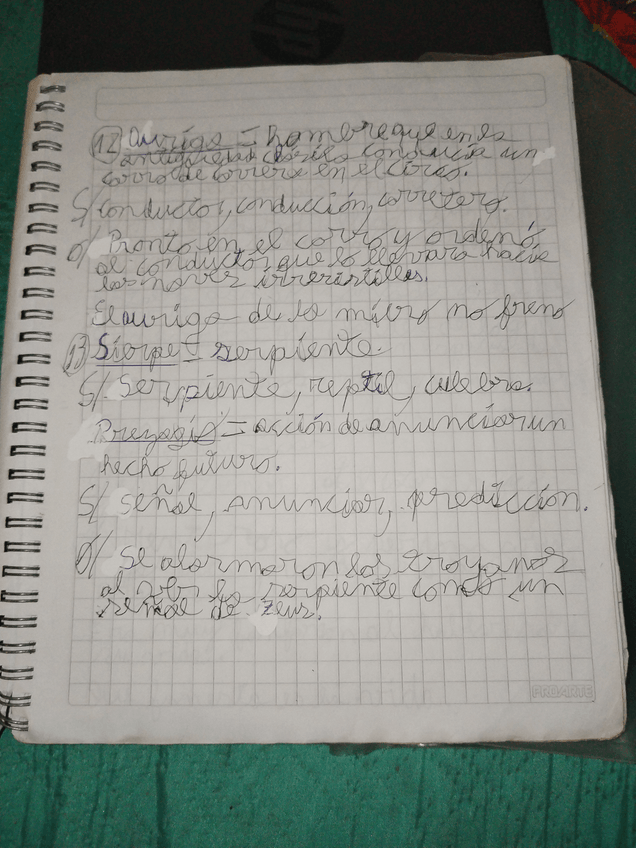 12 Auriga = hombre que en la
antiguedad clásila conducía un
carro de carrera en el circo.
S/ conductor, conducción, carretero.
O/ Pronto en el carro y ordenó
al conductor que lo llevara hacia
las naves
El auriga de la micro no freno
13 Sierpe = serpiente.
S/. Serpiente, reptil, culebra.
Prezagio = acción de anunciar un
hecho futuro.
S/ Señal, anunciar, predicción.
O/ Se alarmaron los troyanos
al ver la serpiente como un
señal de Zeus.
PROARTE
hp